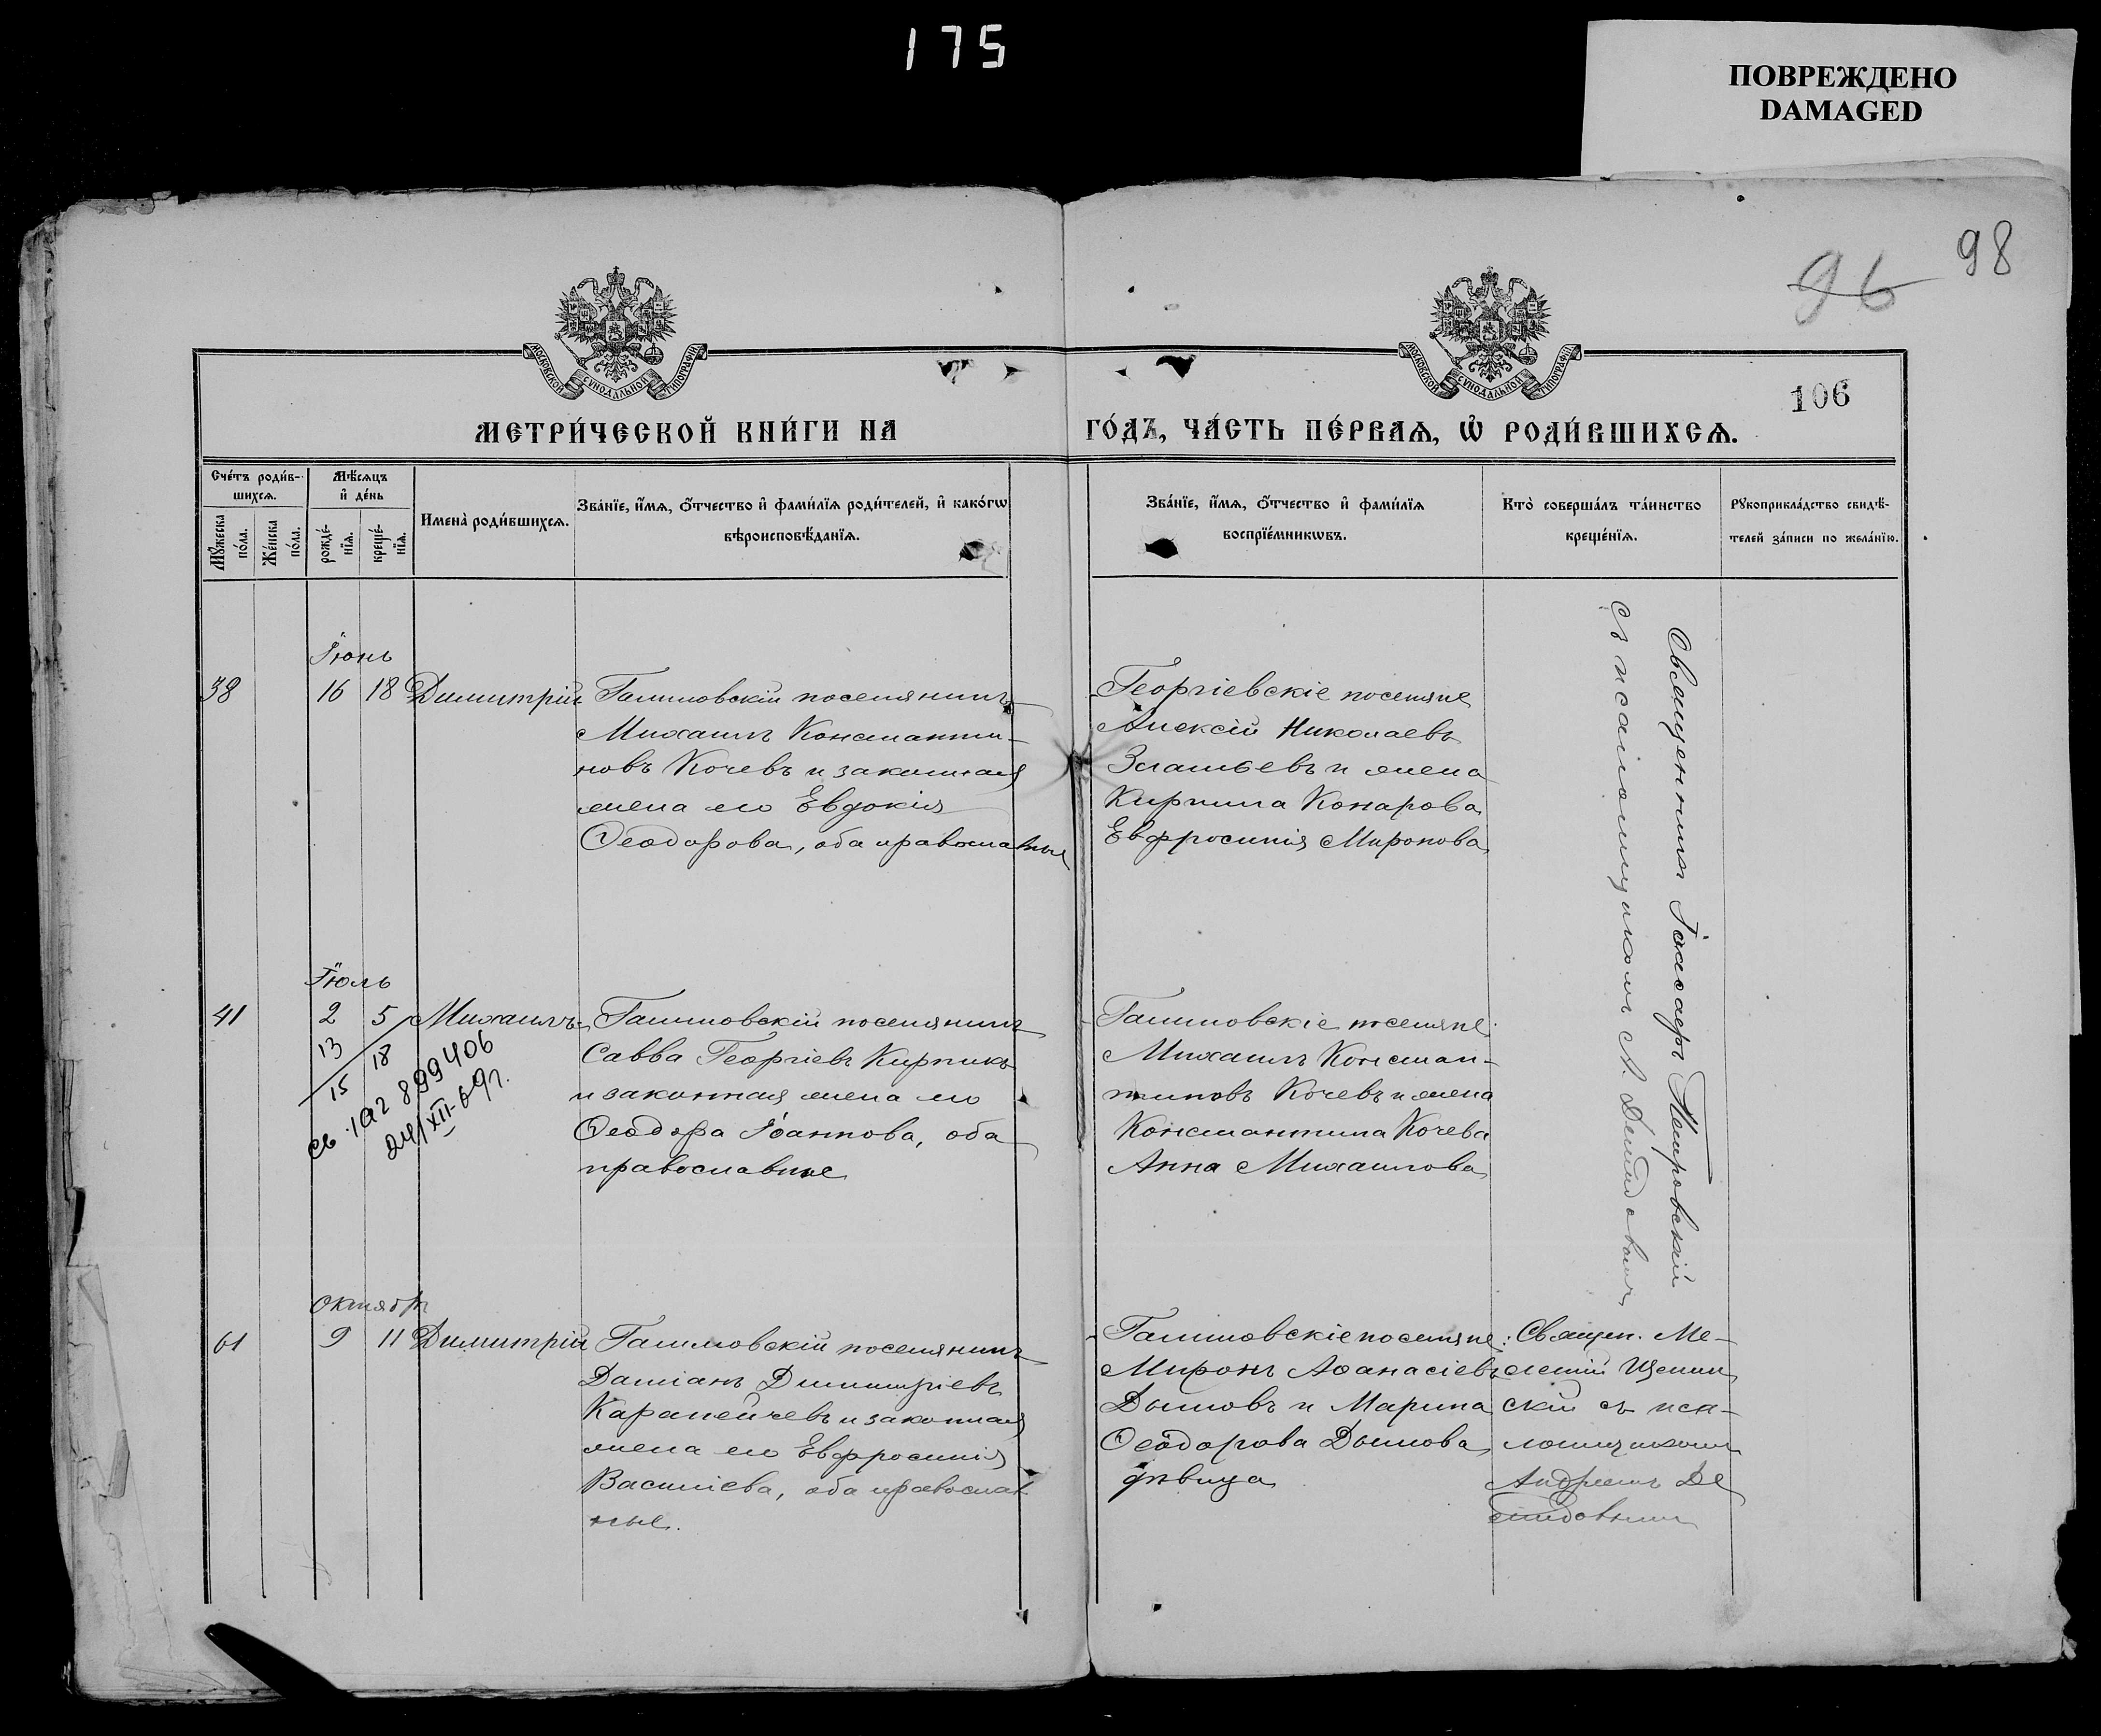 175
ПОВРЕЖДЕНО
DAMAGED
98
96
106
МОСКОВСКОЙ СѴНОДАЛЬНОЙ ТИПОГРАФІИ
МОСКОВСКОЙ СѴНОДАЛЬНОЙ ТИПОГРАФІИ
МЕТРИ́ЧЕСКОЙ КНИ́ГИ НА
ГО́ДЪ, ЧА́СТЬ ПЕ́РВАѦ, Ѡ҆ РОДИ́ВШИХСѦ.
Сче́тъ роди́в-
шихсѧ.
Мꙋжеска по́ла.
Же́нска по́ла.
Мѣ́сѧцъ
и҆ де́нь
рожде́-
нїѧ.
креще́-
нїѧ.
Имена̀ роди́вшихсѧ.
Зва́нїе, и҆́мѧ, ѻ҆́тчество и҆ фами́лїѧ роди́телей, и҆ како́гѡ
вѣроисповѣ́данїѧ.
Зва́нїе, и҆́мѧ, ѻ҆́тчество и҆ фами́лїѧ
воспрїе́мникѡвъ.
Кто̀ соверша́лъ та́инство
креще́нїѧ.
Рꙋкоприкла́дство свидѣ́-
телей за́писи по жела́нїю.
Іюнь
38 16 18 Димитрій
Галиловскій поселянинъ
Михаилъ Константи-
новъ Кочевъ и законная
жена его Евдокія
Ѳеодорова, оба православные
Георгіевскіе поселяне
Алексій Николаевъ
Златьевъ и жена
Кирилла Конарова
Евфросинія Миронова
Священникъ Іоасафъ Петровскій
съ псаломщикомъ А. Демидовымъ
Іюль
41 2 5 Михаилъ
13 18
15
св. 1 892 899406
24/XII-69г.
Галиловскій поселянинъ
Савва Георгіевъ Кирчикъ
и законная жена его
Ѳеодора Іоаннова, оба
православные
Галиловскіе поселяне:
Михаилъ Констан-
тиновъ Кочевъ и жена
Константина Кочева
Анна Михаилова
Октябрь
61 9 11 Димитрій
Галиловскій поселянинъ
Даміанъ Димитріевъ
Карапейчевъ и законная
жена его Евфросинія
Василіева, оба православ
ные.
Галиловскіе поселяне:
Миронъ Аѳанасіевъ
Дымовъ и Марина
Ѳеодорова Дымова
дѣвица
Священ. Ме-
летій Щемин
скій съ пса-
ломщикомъ
Андреемъ Де
мидовымъ